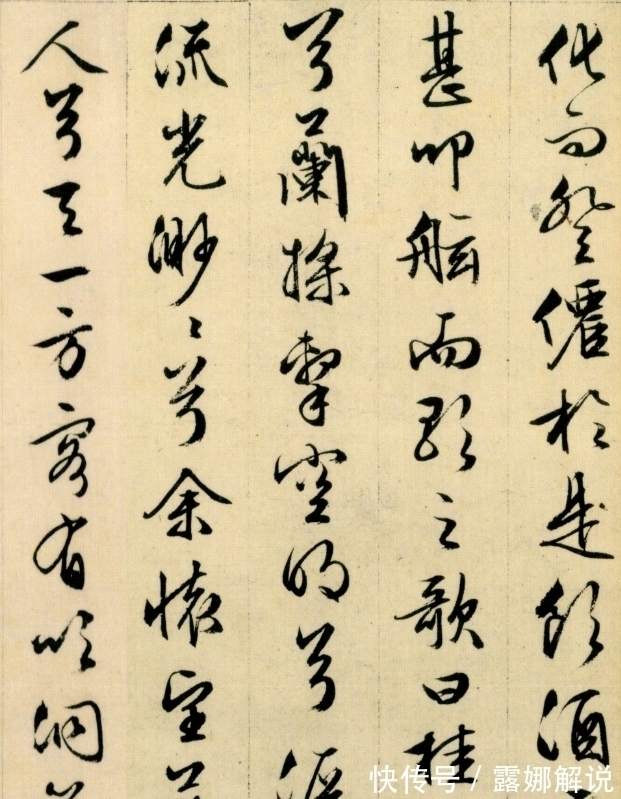 化而登僊於是飲酒
甚叩舷而歌之歌曰桂
兮蘭槳擊空明兮泝
流光渺〻兮余懷望美
人兮天一方客有吹洞
快传号 / 露娜解说